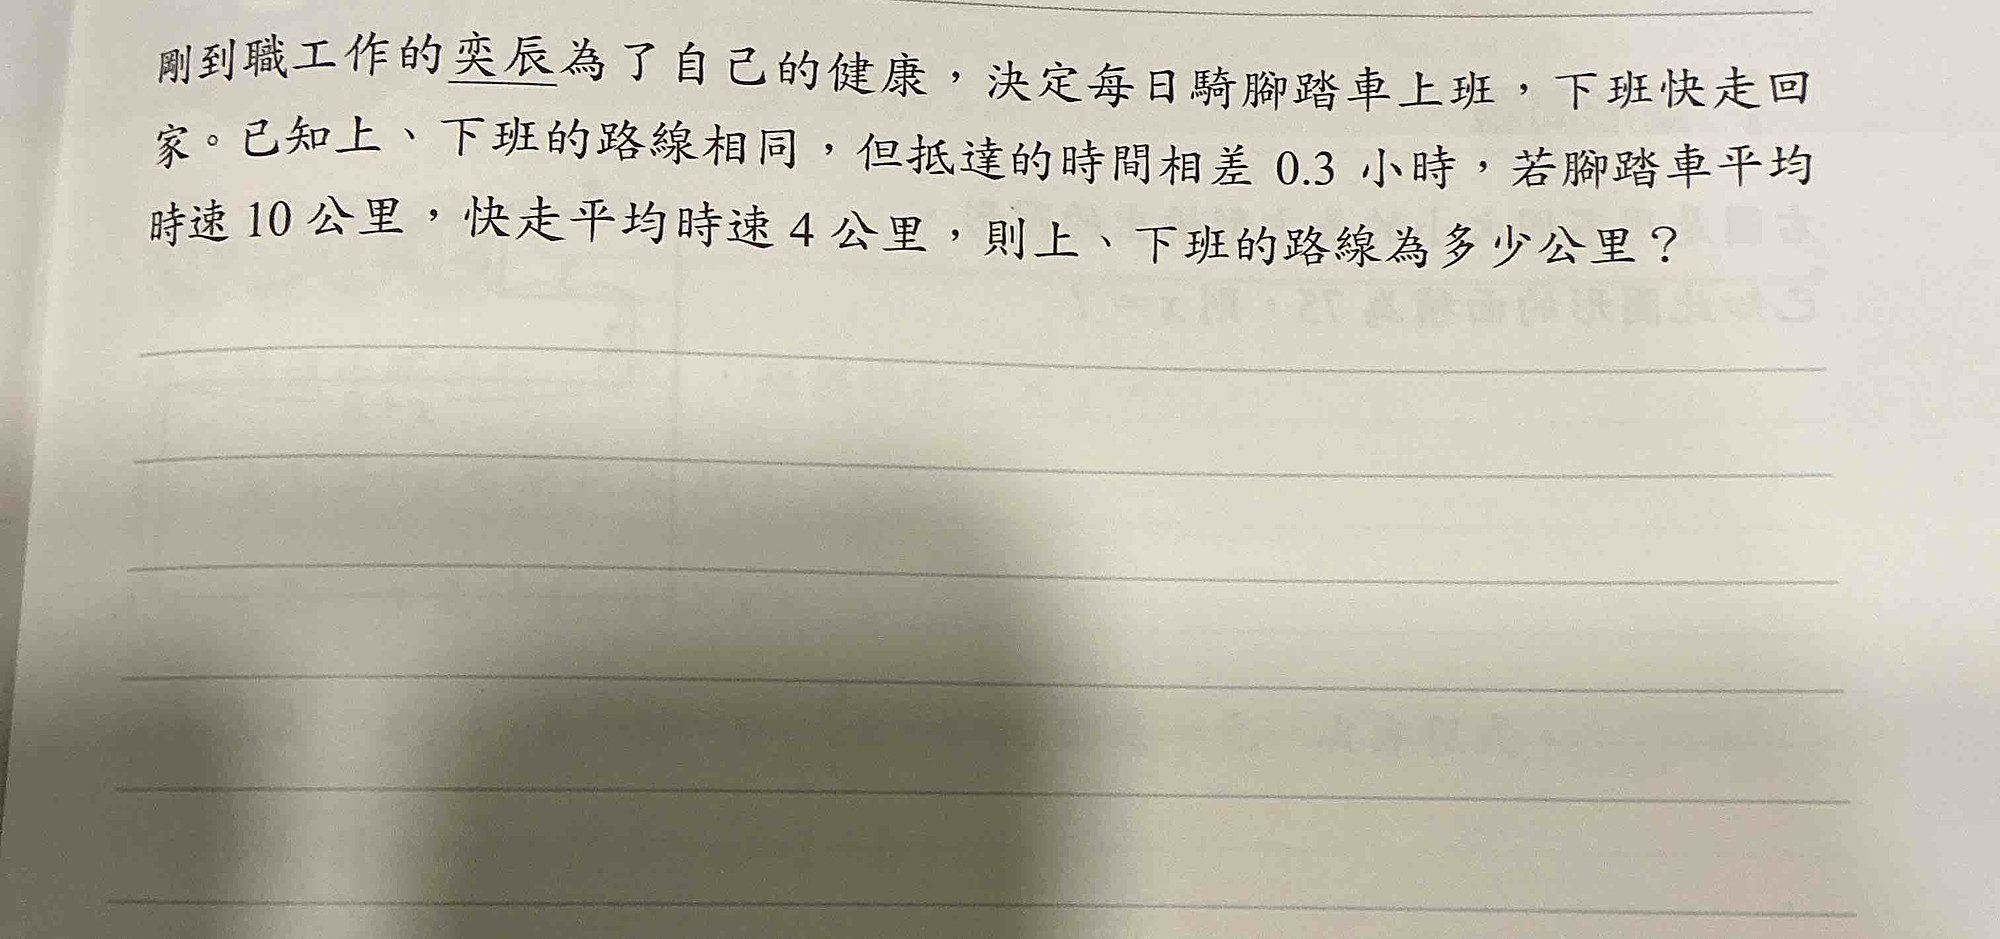 剛到職工作的奕辰為了自己的健康，決定每日騎腳踏車上班，下班快走回
家。已知上、下班的路線相同，但抵達的時間相差 0.3 小時，若腳踏車平均
時速 10 公里，快走平均時速 4 公里，則上、下班的路線為多少公里？